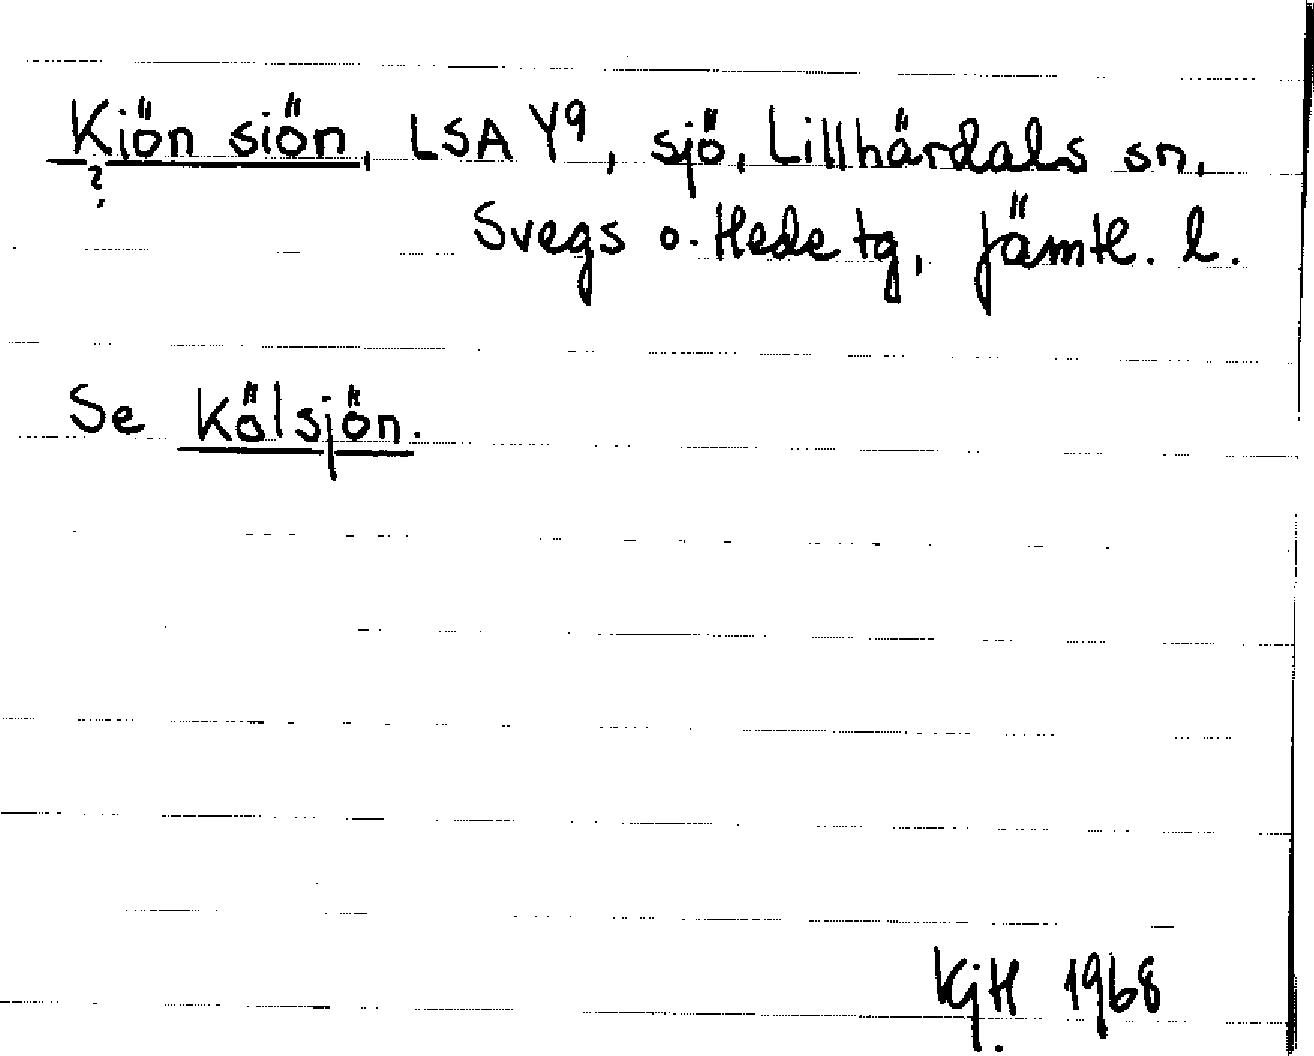 Kiön siön, LSA Y9, sjö, Lillhärdals sn,
?
Svegs o. Hede tg, Jämtl. l.
Se Kölsjön.
KjH 1968